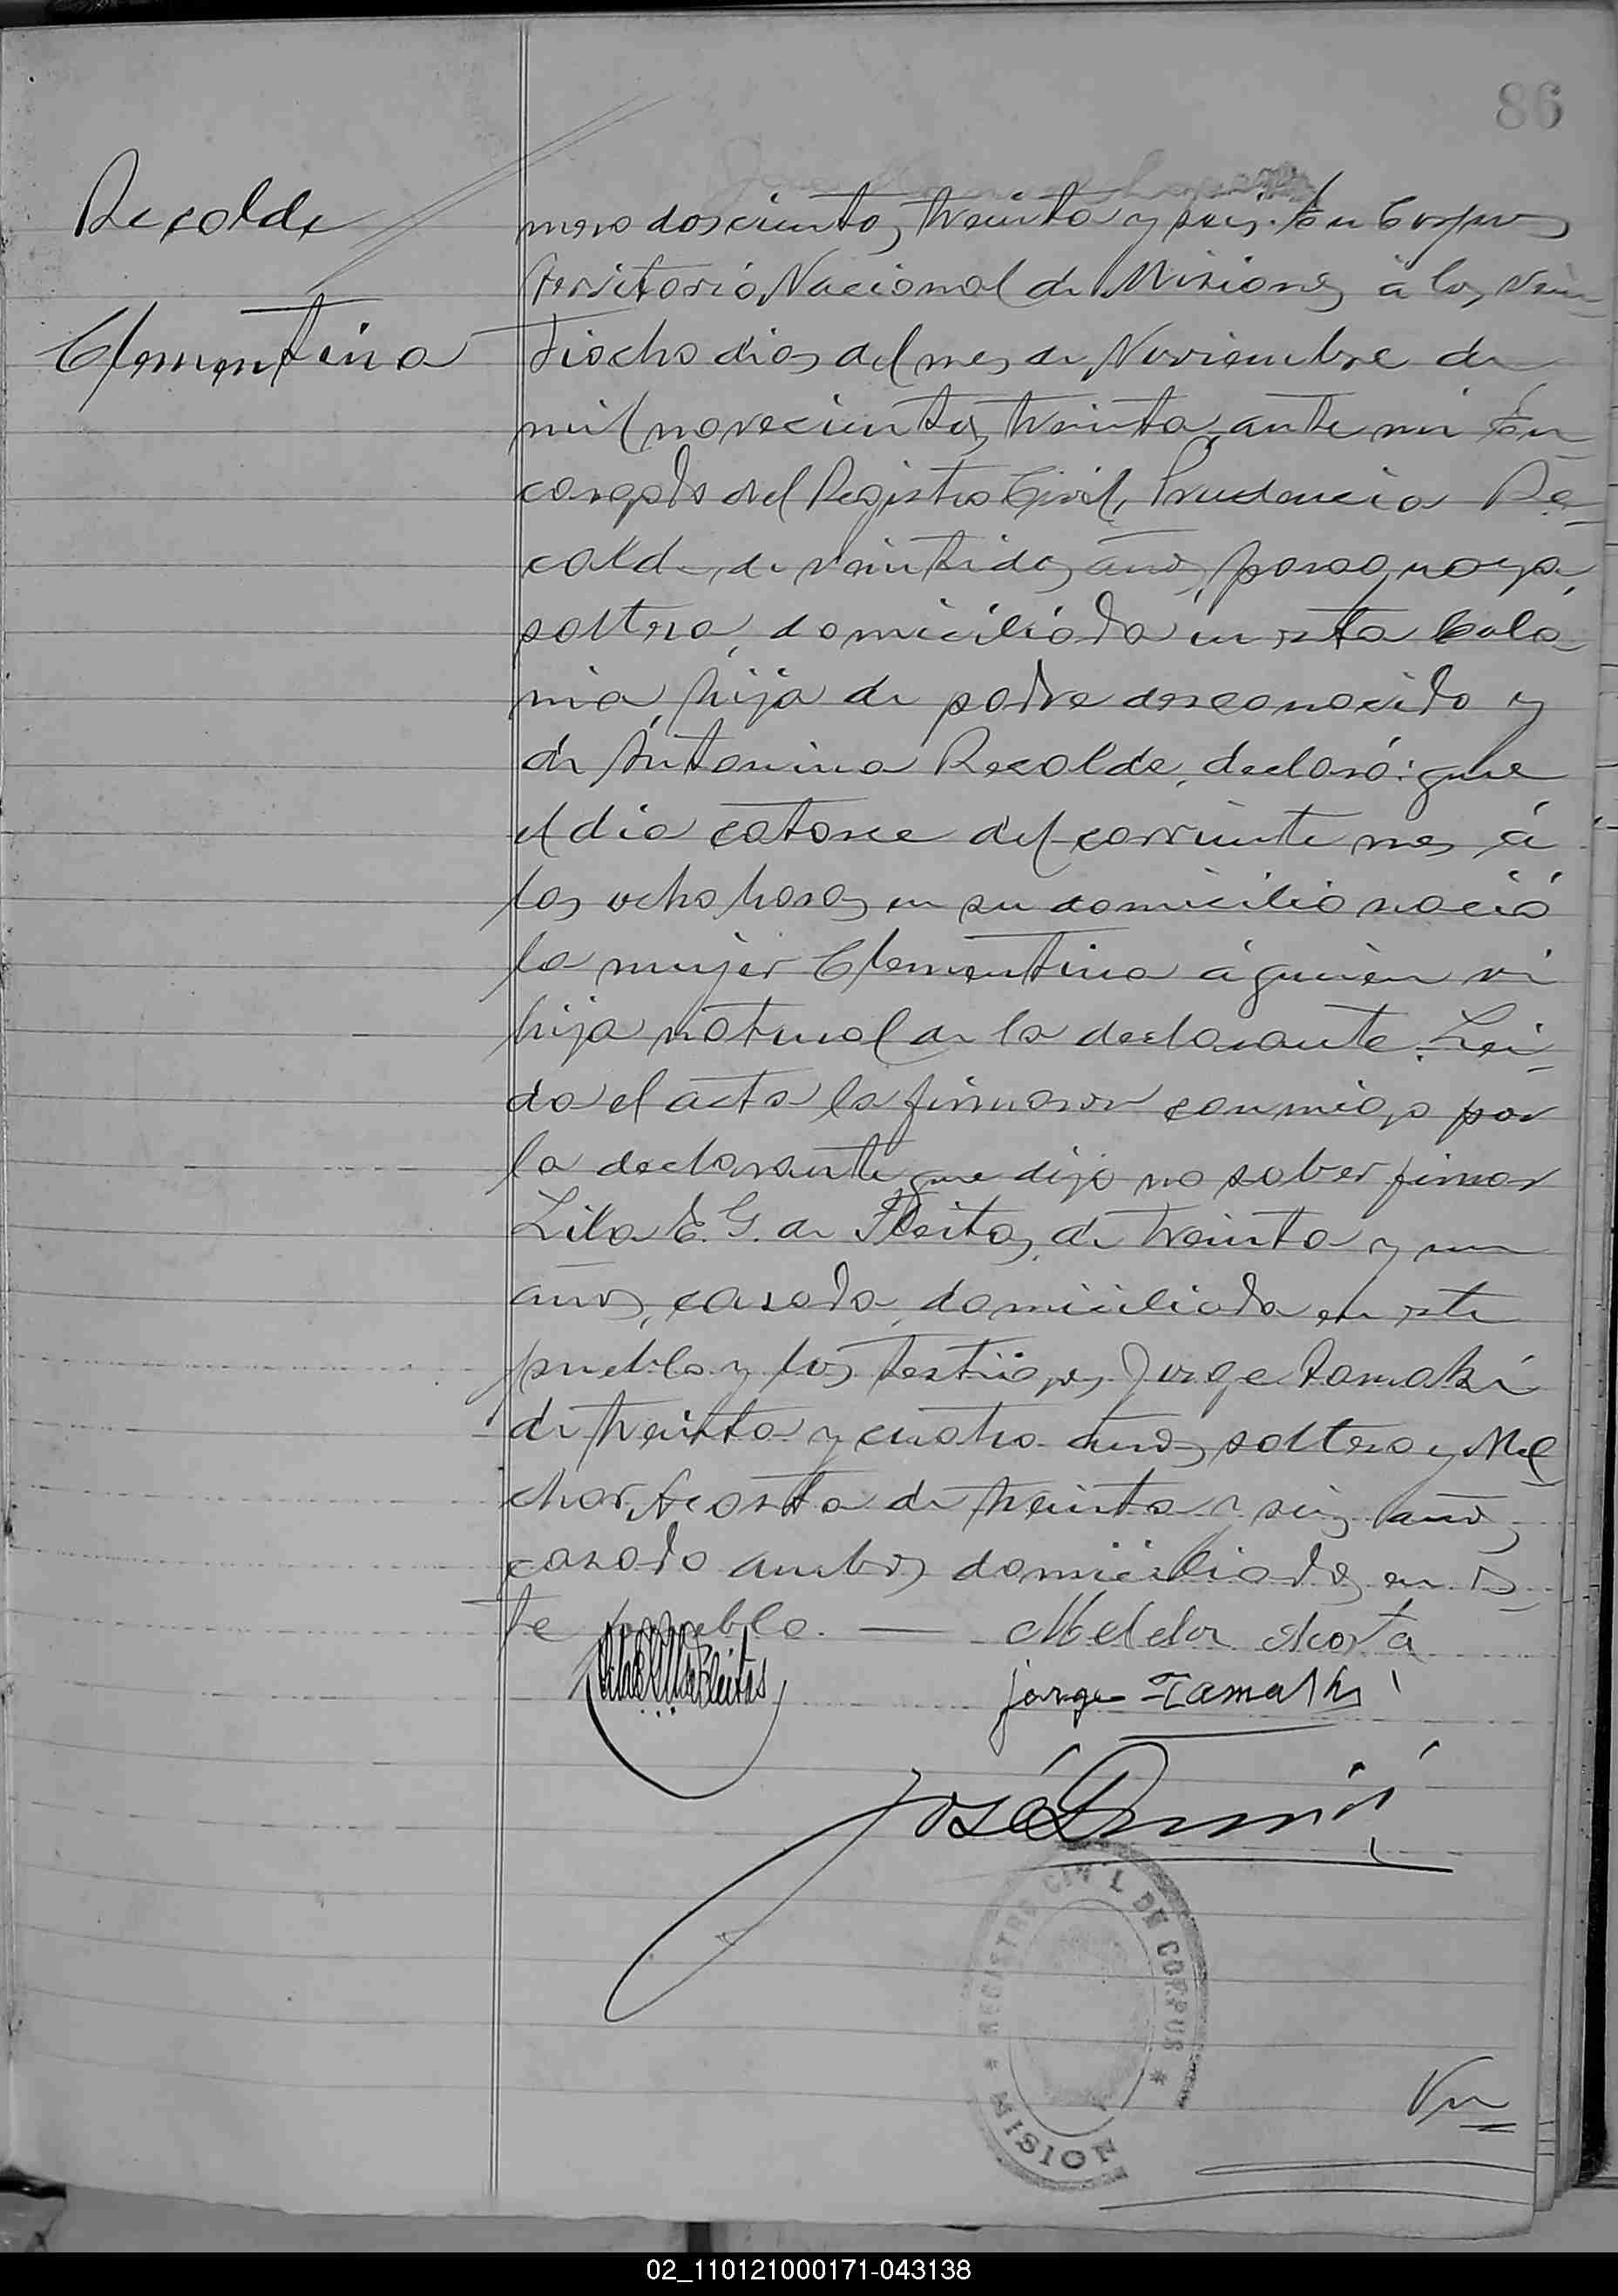 86
Recolde
Clementina
mero doscientos treinta y seis. En Corpus
Territorio Nacional de Misiones á los vein-
tiocho dias del mes de Noviembre de
mil novecientos treinta ante mi En-
cargado del Registro Civil, Prudencia Re-
calde, de veintidos años, paraguaya,
soltera, domiciliada en esta Colo-
nia, hija de padre desconocido y
de Antonina Recolde, declaró: que
el dia catorce del corriente mes á
las ocho horas en su domicilio nació
la mujer Clementina á quien vi
hija natural de la declarante. Lei-
da el acta la firmaron conmigo por
la declarante que dijo no saber firmar
Lila E. G. de Fleitas, de treinta y un
años, casada, domiciliada en este
pueblo y los testigos Jorge Zamaski
de treinta y cuatro años, soltero y Mel
chor Acosta de treinta y seis años,
casado ambos domiciliados en es-
te pueblo. — Melchor Acosta
Fleitas
jorge Zamaski
José
REGISTRO CIVIL DE CORPUS
* MISION